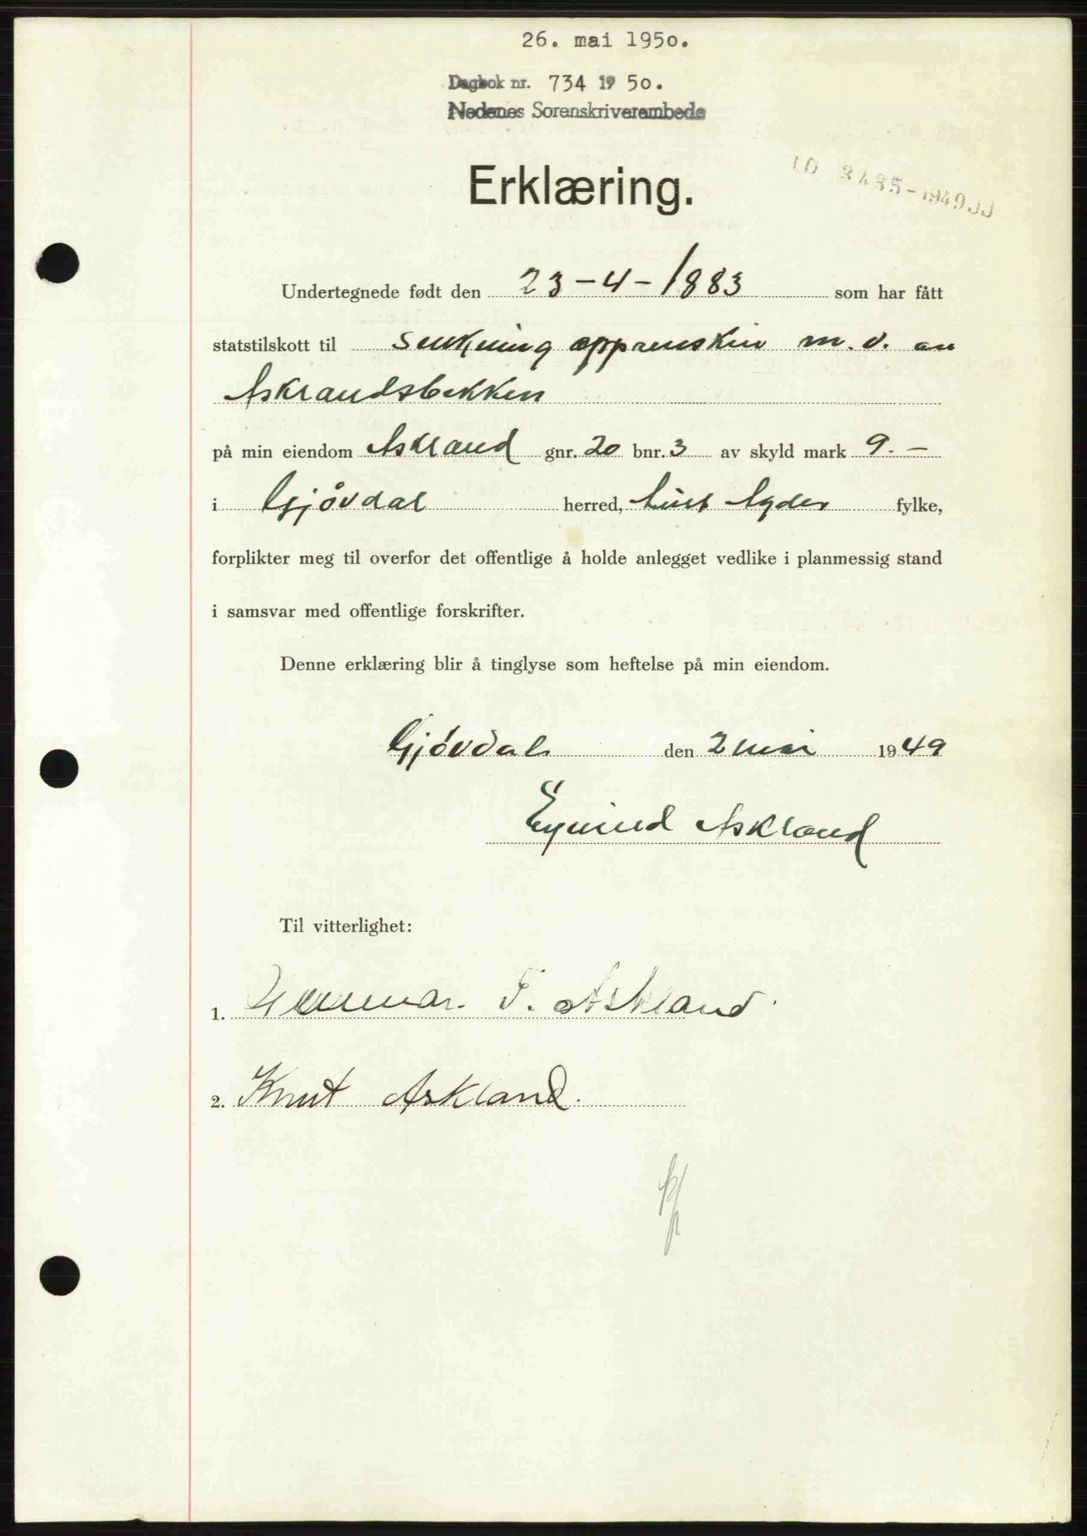 26. mai 1950.
Dagbok nr. 734 19 50.
Nedenes Sorenskriverembede
LD 3435-1949JJ
Erklæring.
Undertegnede født den 23-4-1883 som har fått
statstilskott til senkning opprenskin m.v. av
Asklandsbekken
på min eiendom Askland gnr. 20 bnr. 3 av skyld mark 9.-
i Gjøvdal herred, Aust Agder fylke,
forplikter meg til overfor det offentlige å holde anlegget vedlike i planmessig stand
i samsvar med offentlige forskrifter.
Denne erklæring blir å tinglyse som heftelse på min eiendom.
Gjøvdal den 2 mai 1949
Eyvind Askland
Til vitterlighet:
1. Gunnar T. Askland
2. Knut Askland.